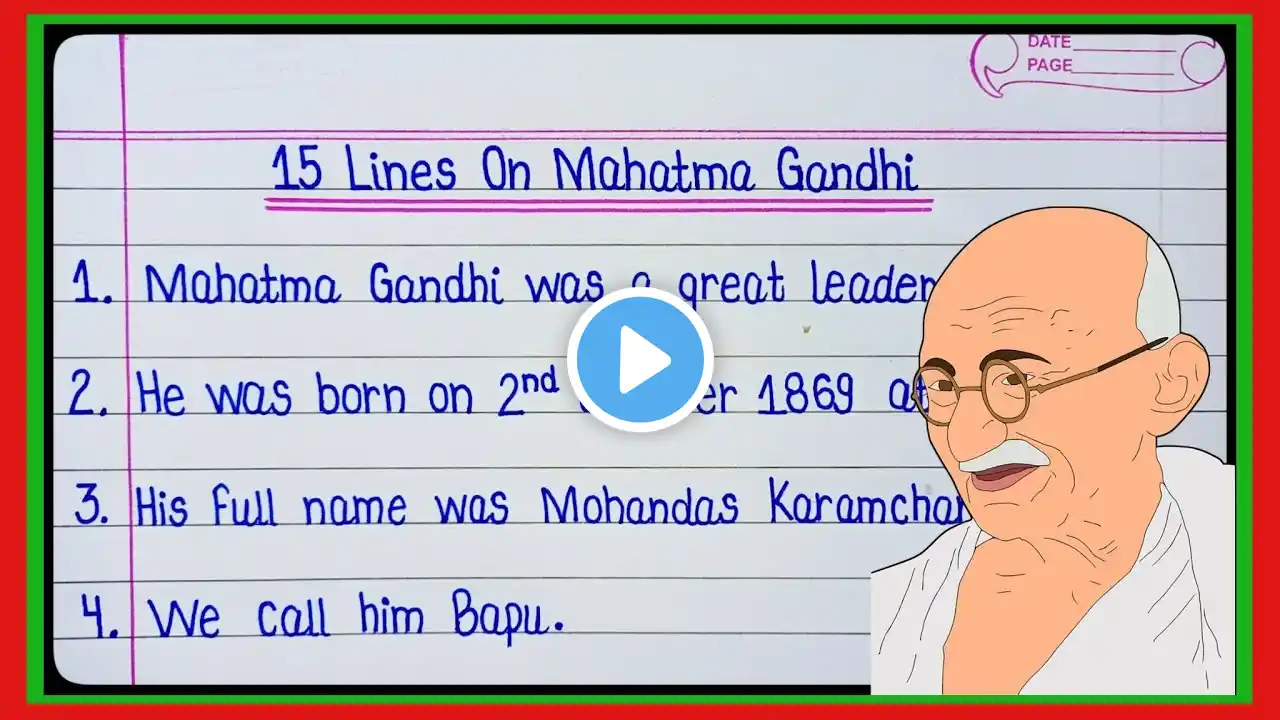 DATE
PAGE
15 Lines On Mahatma Gandhi
1. Mahatma Gandhi was a great leader
2. He was born on 2nd 1869 at
3. His full name was Mohandas
4. We call him Bapu.